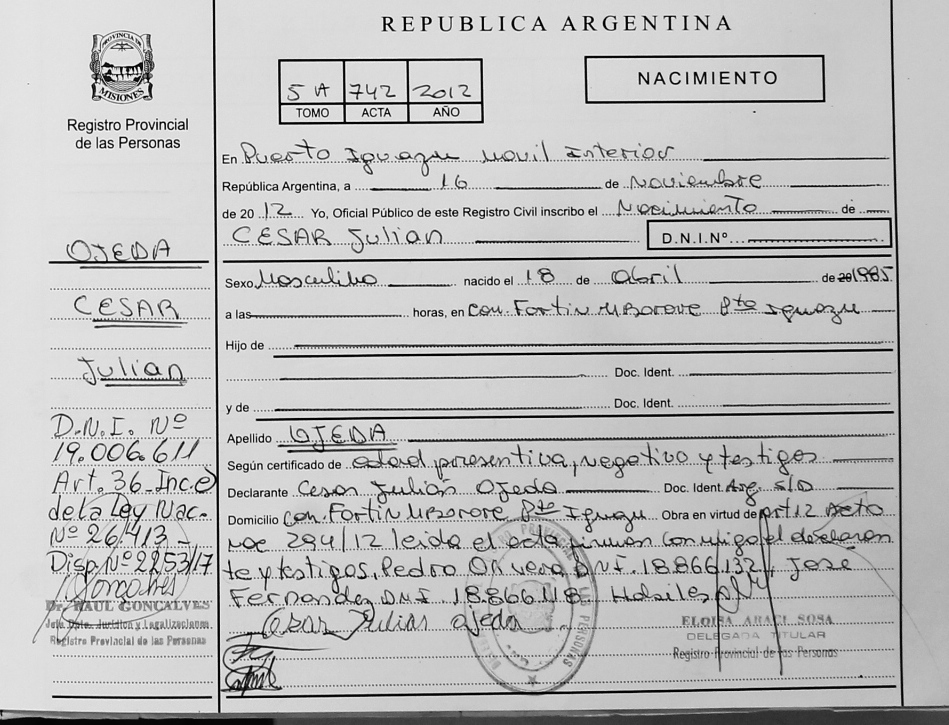 REPUBLICA ARGENTINA
PROVINCIA DE
MISIONES
Registro Provincial
de las Personas
5 A 742 2012
TOMO ACTA AÑO
NACIMIENTO
En Puerto Iguazu Movil Interior
República Argentina, a 16 de Noviembre
de 2012 Yo, Oficial Público de este Registro Civil inscribo el Nacimiento de
CESAR Julian D.N.I.Nº
Sexo Masculino nacido el 18 de Abril de 20 1985
a las horas, en Com. Fortin Mborore Pto Iguazu
Hijo de
Doc. Ident.
y de Doc. Ident.
Apellido OJEDA
Según certificado de edad presentiva, negativo y testigos
Declarante Cesar Julián Ojeda Doc. Ident. Arg. S/D
Domicilio Com. Fortin Mborore Pto Iguazu Obra en virtud de art 12 Acto
294/12 leida el acta firman conmigo el declaran
te y testigos, Pedro Olivera D.N.I. 18.866.132, José
Fernandez DNI 18.866.118 Habiles
Cesar Julian Ojeda
ELOISA SOSA
DELEGADA TITULAR
Registro Provincial de las Personas
OJEDA
CESAR
Julian
D.N.I. Nº
19.006.611
Art. 36 Inc. e
de la Ley Nac.
Nº 26.413 -
Disp. Nº 2253/17
Dr. RAUL GONCALVES
Jefe Dpto. Jurídico y Legalizaciones
Registro Provincial de las Personas
PERSONAS